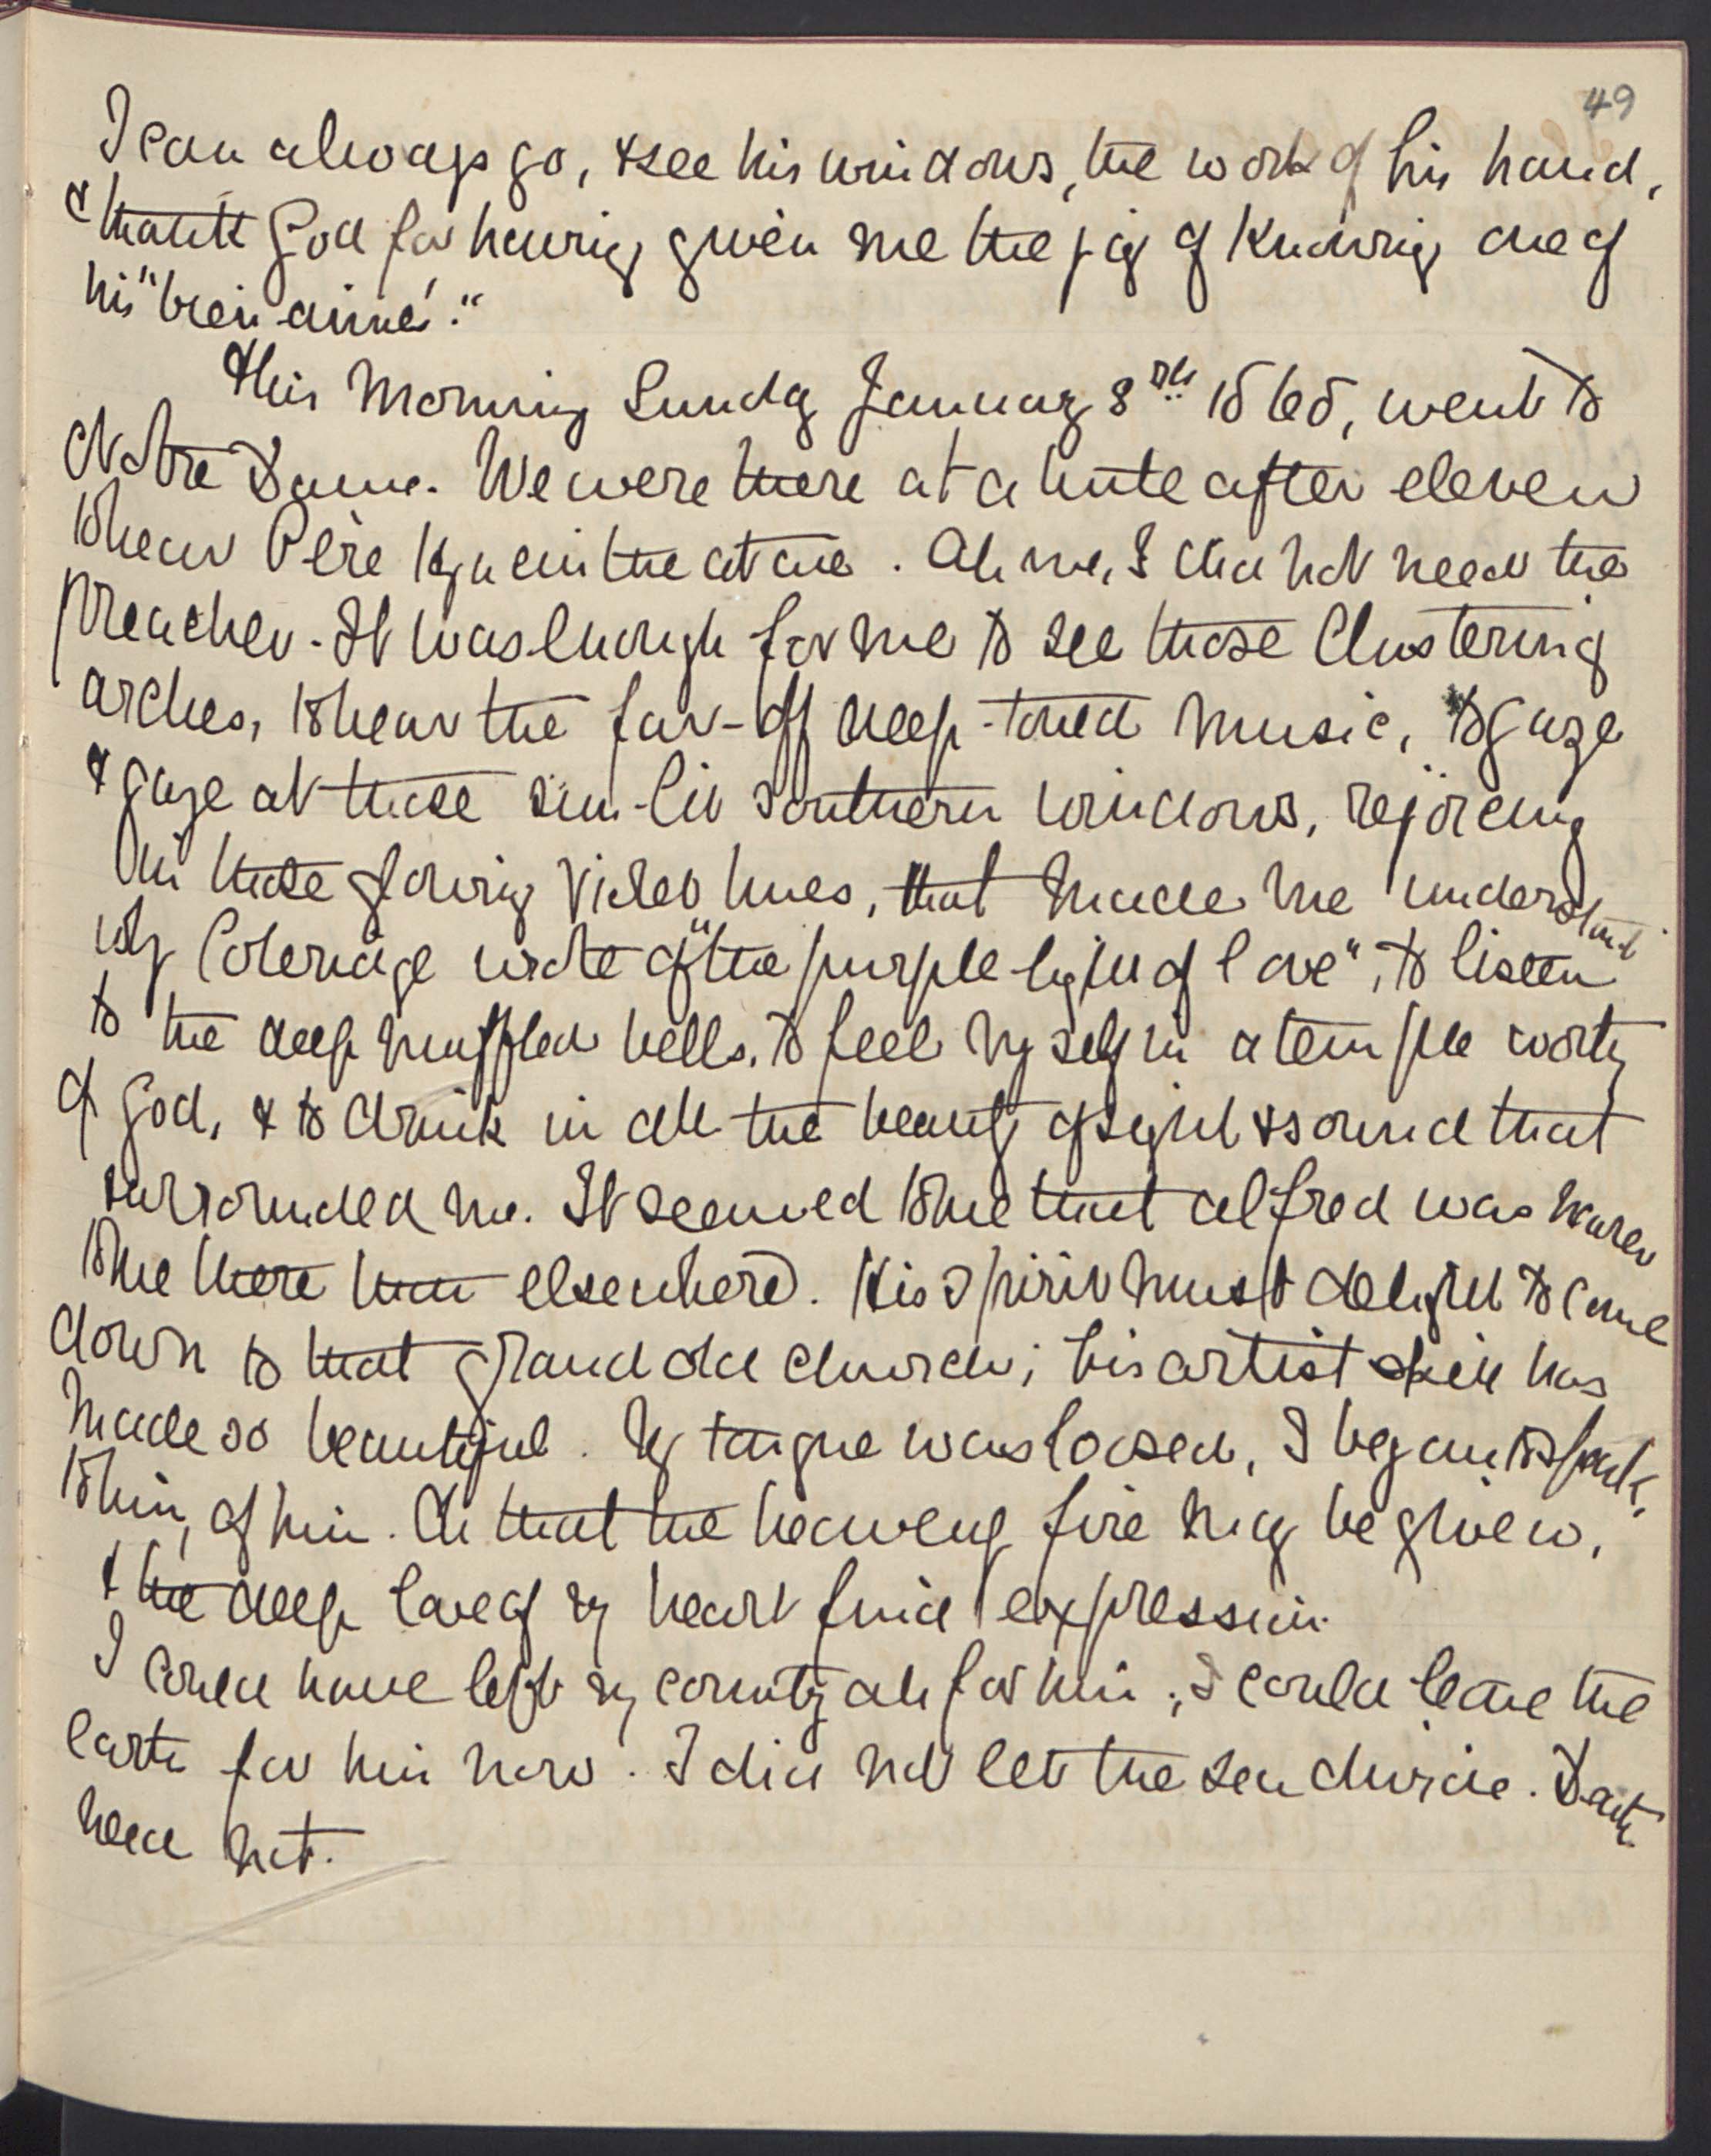 49
I can always go, & see his windows, the work of his hand,
& thank God for having given me the joy of knowing one of
his "bien-aimé."
This Morning Sunday January 8th 1865, went to
Notre Dame. We were there at a little after eleven
to hear Père Hyacinthe at one. Ah me, I did not need the
preacher. It was enough for me to see those clustering
arches, to hear the far-off deep-toned music, to gaze
& gaze at those sun-lit southern windows, rejoicing
in those glowing violet hues, that made me understand
why Coleridge wrote of "the purple light of love", to listen
to the deep muffled bells, to feel myself in a temple worthy
of God, & to drink in all the beauty of sight & sound that
surrounded me. It seemed to me that Alfred was nearer
to me there than elsewhere. His spirit must delight to come
down to that grand old church; his artist skill has
made so beautiful. My tongue was loosed, I began to speak,
to him, of him. Oh that the heavenly fire may be given,
& the deep love of my heart find expression.
I could have left my country all for him; I could leave the
earth for him now. I did not let the sea divide. Death
need not.